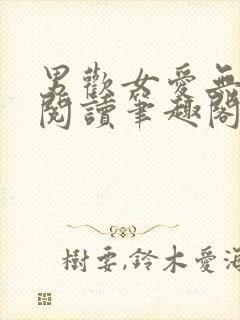 男歡女愛無
閱讀筆趣閣
樹要,鈴木愛海